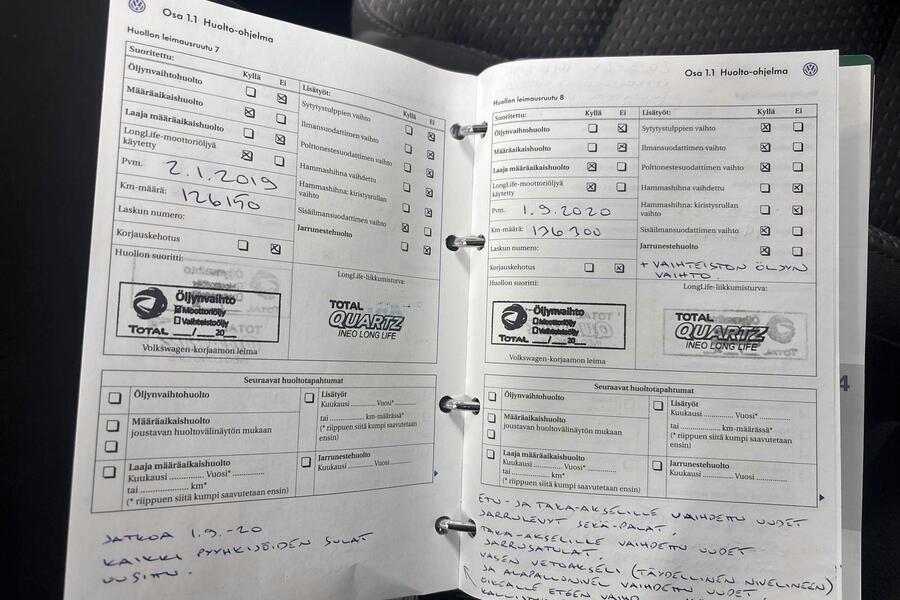 Osa 1.1 Huolto-ohjelma
Huollon leimausruutu 7
Suoritettu:
Kyllä Ei
Öljynvaihtohuolto
Määräaikaishuolto
Laaja määräaikaishuolto
LongLife-moottoriöljyä
käytetty
Pvm. 2.1.2019
Km-määrä: 126150
Laskun numero:
Korjauskehotus
Huollon suoritti:
Lisätyöt:
Kyllä Ei
Sytytystulppien vaihto
Ilmansuodattimen vaihto
Polttonestesuodattimen vaihto
Hammashihna vaihdettu
Hammashihna: kiristysrullan
vaihto
Sisäilmansuodattimen vaihto
Jarrunestehuolto
LongLife-liikkumisturva:
Öljynvaihto
Moottoriöljy
Vaihteistoöljy
TOTAL __/__ 20__
Volkswagen-korjaamon leima
TOTAL
QUARTZ
INEO LONG LIFE
Seuraavat huoltotapahtumat
Öljynvaihtohuolto
Määräaikaishuolto
joustavan huoltovälinäytön mukaan
Laaja määräaikaishuolto
Kuukausi ........... Vuosi* ...........
tai ........... km*
(* riippuen siitä kumpi saavutetaan ensin)
Lisätyöt
Kuukausi ........... Vuosi* ...........
tai ........... km-määrässä*
(* riippuen siitä kumpi saavutetaan
ensin)
Jarrunestehuolto
Kuukausi ........... Vuosi ...........
JATKOA 1.9.-20
KAIKKI PYYHKIJÖIDEN SULAT
UUSITTU.
Osa 1.1 Huolto-ohjelma
Huollon leimausruutu 8
Suoritettu:
Kyllä Ei
Öljynvaihtohuolto
Määräaikaishuolto
Laaja määräaikaishuolto
LongLife-moottoriöljyä
käytetty
Pvm. 1.9.2020
Km-määrä: 136300
Laskun numero:
Korjauskehotus
Huollon suoritti:
Lisätyöt:
Kyllä Ei
Sytytystulppien vaihto
Ilmansuodattimen vaihto
Polttonestesuodattimen vaihto
Hammashihna vaihdettu
Hammashihna: kiristysrullan
vaihto
Sisäilmansuodattimen vaihto
Jarrunestehuolto
+ VAIHTEISTON ÖLJYN
VAIHTO.
LongLife-liikkumisturva:
Öljynvaihto
Moottoriöljy
Vaihteistoöljy
TOTAL __/__ 20__
Volkswagen-korjaamon leima
TOTAL
QUARTZ
INEO LONG LIFE
Seuraavat huoltotapahtumat
Öljynvaihtohuolto
Määräaikaishuolto
joustavan huoltovälinäytön mukaan
Laaja määräaikaishuolto
Kuukausi ........... Vuosi* ...........
tai ........... km*
(* riippuen siitä kumpi saavutetaan ensin)
Lisätyöt
Kuukausi ........... Vuosi* ...........
tai ........... km-määrässä*
(* riippuen siitä kumpi saavutetaan
ensin)
Jarrunestehuolto
Kuukausi ........... Vuosi ...........
ETU- JA TAKA-AKSELILLE VAIHDETTU UUDET
JARRULEVYT SEKÄ-PALAT.
TAKA-AKSELILLE VAIHDETTU UUDET
JARRUSATULAT.
VASEN VETOAKSELI (TÄYDELLINEN NIVELINEEN)
JA ALAPALLONIVEL VAIHDETTU UUDET
OIKEALLE ETEEN
4